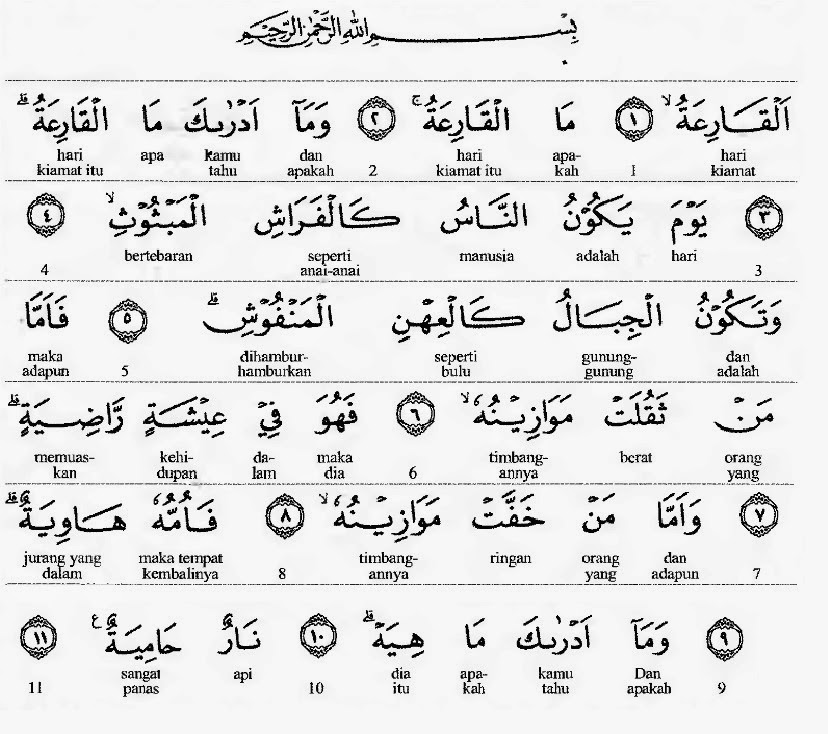 بِسْمِ اللهِ الرَّحْمٰنِ الرَّحِيْمِ
اَلْقَارِعَةُۙ ١ مَا الْقَارِعَةُۚ ٢ وَمَآ اَدْرٰىكَ مَا الْقَارِعَةُۗ
hari apa kamu dan hari apa- hari
kiamat itu tahu apakah 2 kiamat itu kah 1 kiamat
٣ يَوْمَ يَكُوْنُ النَّاسُ كَالْفَرَاشِ الْمَبْثُوْثِۙ ٤
bertebaran seperti manusia adalah hari
4 anai-anai 3
وَتَكُوْنُ الْجِبَالُ كَالْعِهْنِ الْمَنْفُوْشِۗ ٥ فَاَمَّا
maka dihambur- seperti gunung- dan
adapun 5 hamburkan bulu gunung adalah
مَنْ ثَقُلَتْ مَوَازِيْنُهٗۙ ٦ فَهُوَ فِيْ عِيْشَةٍ رَّاضِيَةٍۗ
memuas- kehi- da- maka timbang- berat orang
kan dupan lam dia 6 annya yang
٧ وَاَمَّا مَنْ خَفَّتْ مَوَازِيْنُهٗۙ ٨ فَاُمُّهٗ هَاوِيَةٌۗ
jurang yang maka tempat timbang- ringan orang dan
dalam kembalinya 8 annya yang adapun 7
٩ وَمَآ اَدْرٰىكَ مَا هِيَهْۗ ١٠ نَارٌ حَامِيَةٌ ࣖ ١١
sangat api dia apa- kamu Dan
11 panas 10 itu kah tahu apakah 9